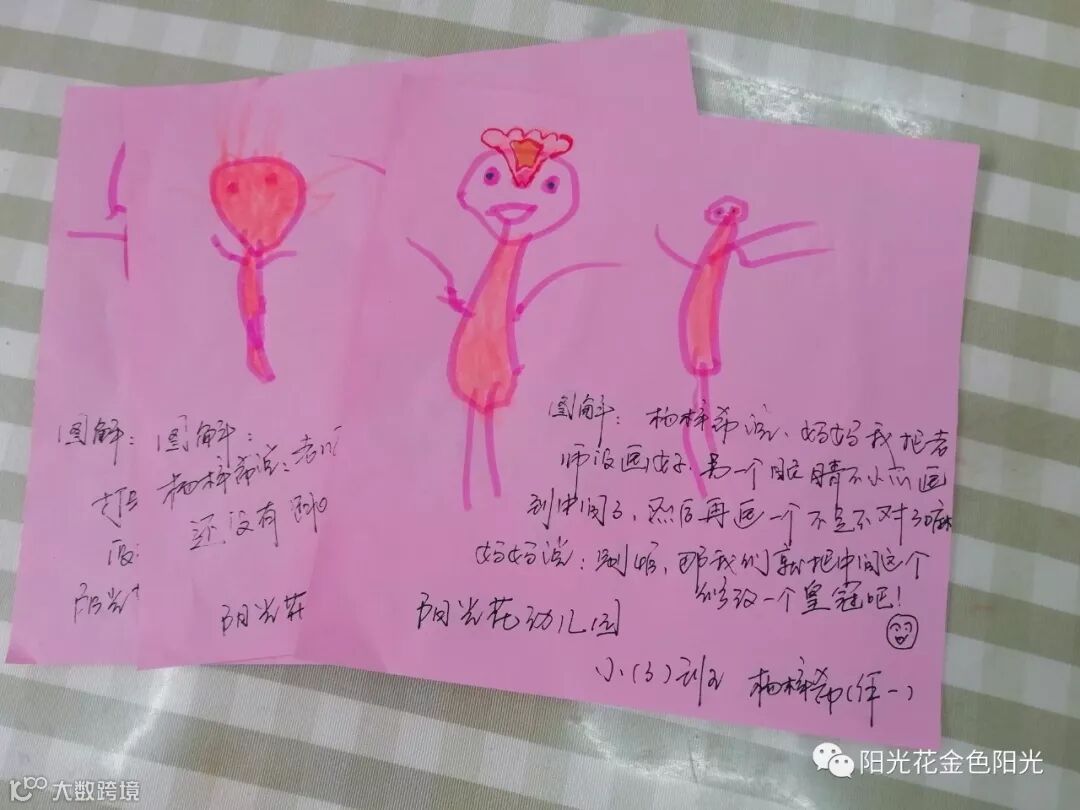 图解：
打
阳光
图解：
杨梓希说：老师
还没有
阳光花
图解：杨梓希说、妈妈我把老
师没画好、另一个眼睛不小心画
到中间了，然后再画一个不是不对了嘛
妈妈说：别怕，那我们就把中间这个
改一个皇冠吧！
阳光花幼儿园
小（3）班 杨梓希（作一）
阳光花金色阳光
大数跨境